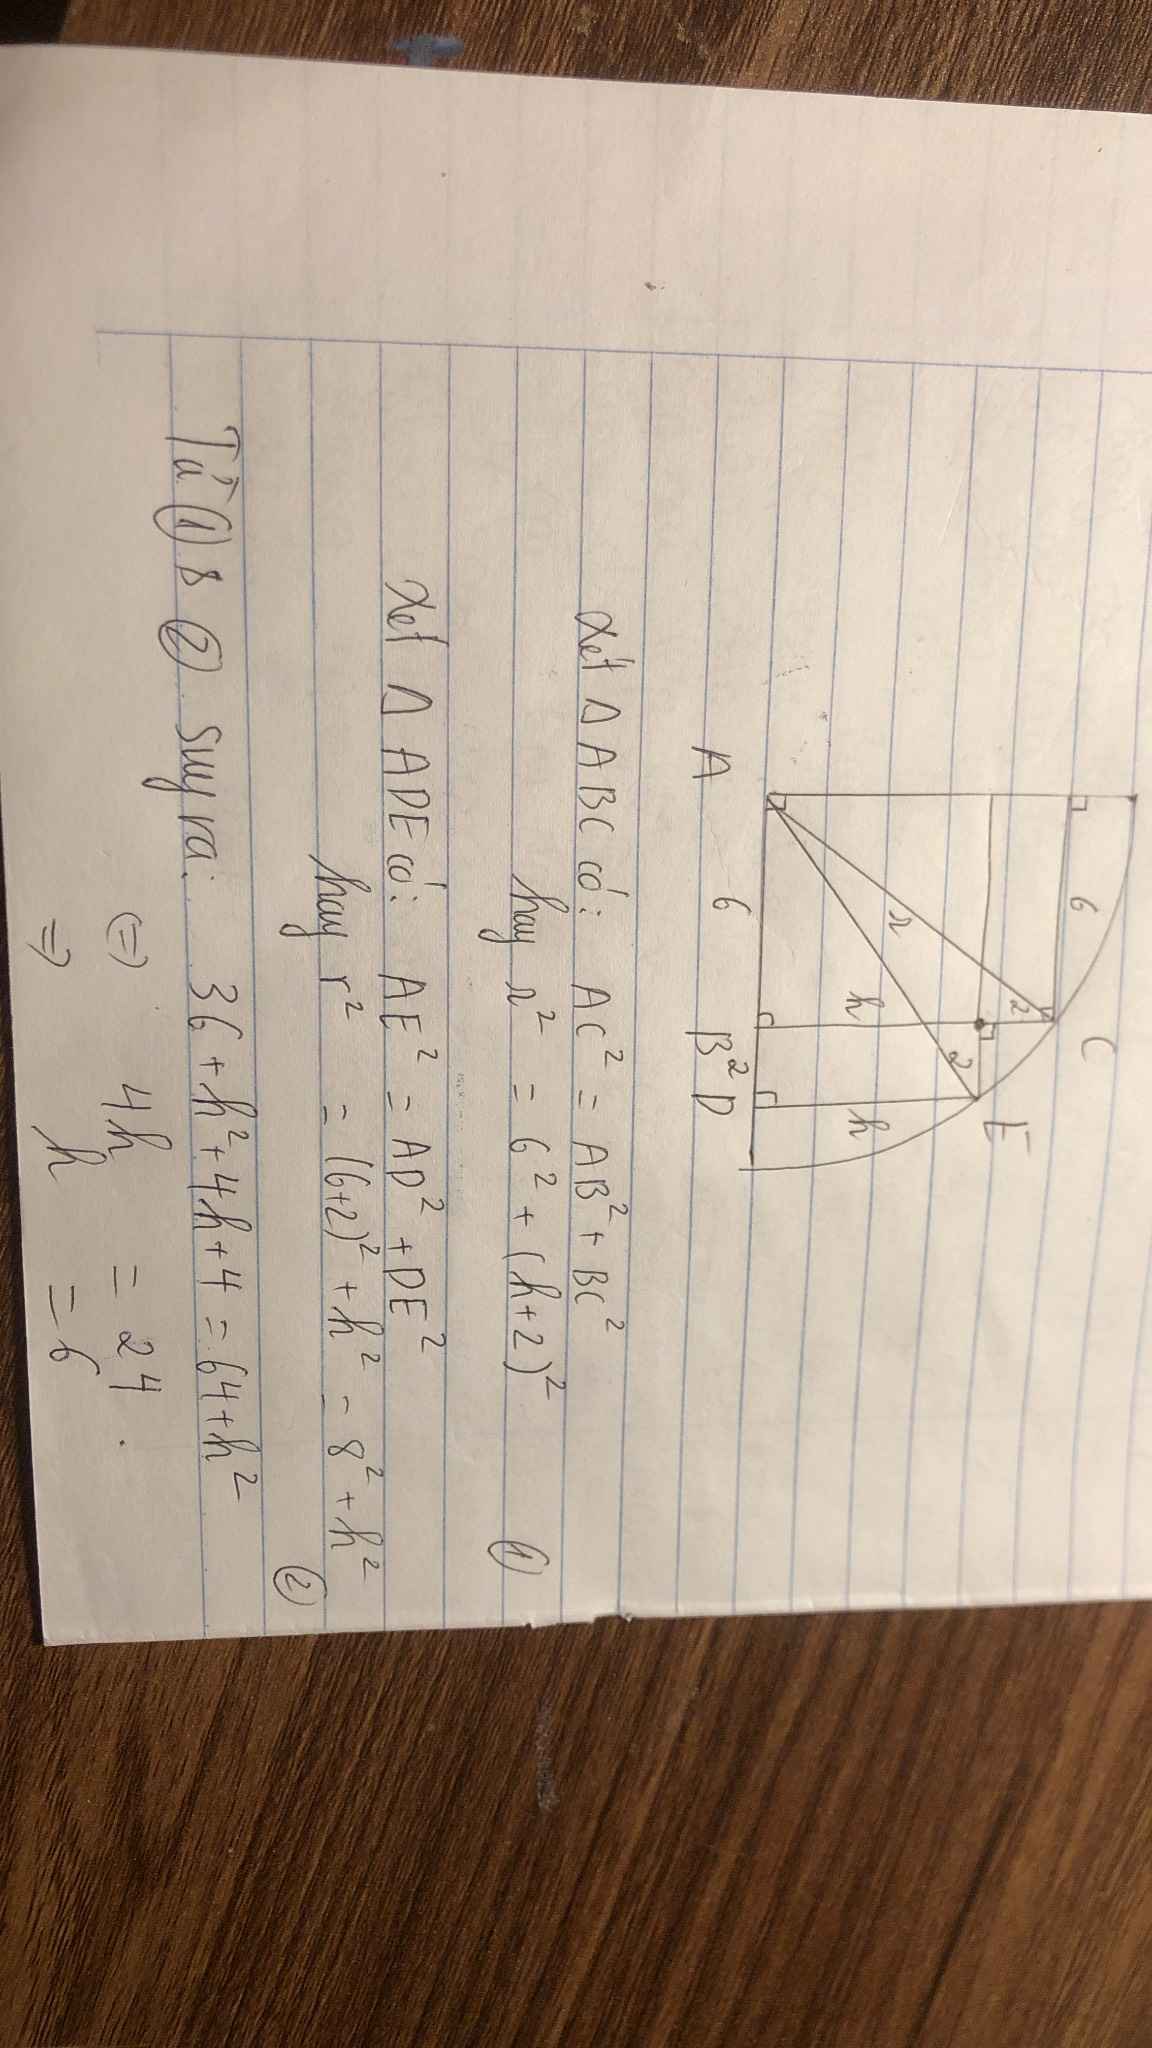 C
6
2
E
r
2
h
h
A 6 B 2 D
Xét Δ ABC có: AC² = AB² + BC²
hay r² = 6² + (h+2)² ①
Xét Δ ADE có: AE² = AD² + DE²
hay r² = (6+2)² + h² = 8² + h² ②
Từ ① & ② suy ra: 36 + h² + 4h + 4 = 64 + h²
⇔ 4h = 24.
⇒ h = 6